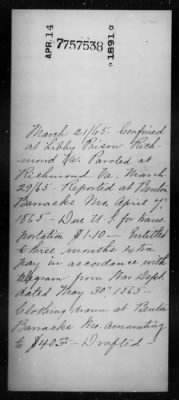 APR. 14 7757538 1891
March 21/65. Confined
at Libby Prison Rich-
mond Va. Paroled at
Richmond Va. March
29/65 Reported at Benton
Barracks Mo. April 7"
1865 - Due U.S. for trans-
portation $1.10 - Entitled
to three months extra
pay in accordance with
telegram from War Dept.
dated May 30" 1865 -
Clothing drawn at Benton
Barracks Mo. amounting
to $40 - Drafted -